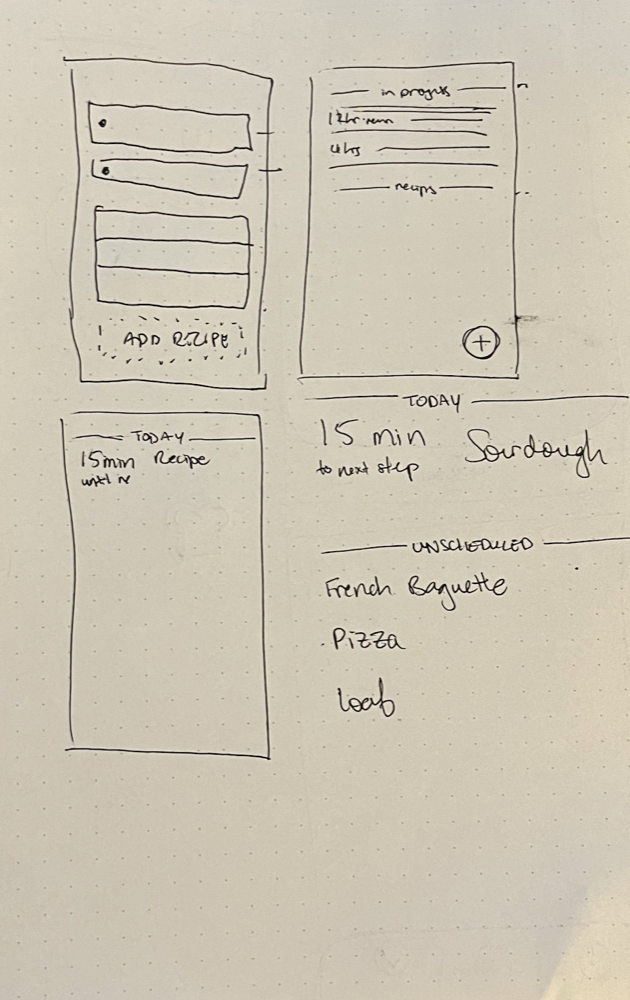 ADD RECIPE
in progress
12hr
4hrs
recips
TODAY
15min Recipe
until
TODAY
15 min Sourdough
to next step
UNSCHEDULED
French Baguette
Pizza
loaf